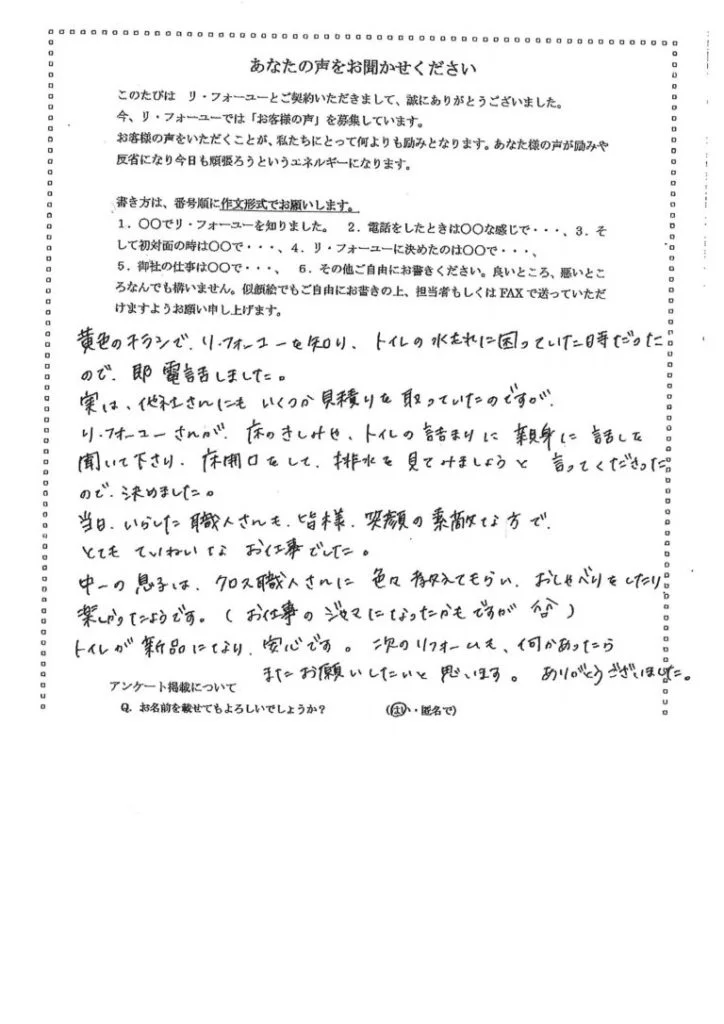 あなたの声をお聞かせください
このたびは　リ・フォーユーとご契約いただきまして、誠にありがとうございました。
今、リ・フォーユーでは「お客様の声」を募集しています。
お客様の声をいただくことが、私たちにとって何よりも励みとなります。あなた様の声が励みや
反省になり今日も頑張ろうというエネルギーになります。
書き方は、番号順に作文形式でお願いします。
１．〇〇でリ・フォーユーを知りました。　２．電話をしたときは〇〇な感じで・・・、３．そ
して初対面の時は〇〇で・・・、４．リ・フォーユーに決めたのは〇〇で・・・、
５．御社の仕事は〇〇で・・・、　６．その他ご自由にお書きください。良いところ、悪いとこ
ろなんでも構いません。似顔絵でもご自由にお書きの上、担当者もしくは FAX で送っていただ
けますようお願い申し上げます。
黄色のチラシで、リ・フォーユーを知り、トイレの水もれに困っていた時だった
ので、即電話しました。
実は、他社さんにもいくつか見積りを取っていたのですが、
リ・フォーユーさんが、床のきしみや、トイレの詰まりに親身に話しを
聞いて下さり、床開口をして、排水を見てみましょうと言ってくださった
ので、決めました。
当日、いらした職人さんも、皆様、笑顔の素敵な方で、
とてもていねいなお仕事でした。
中一の息子は、クロス職人さんに色々教えてもらい、おしゃべりをしたり
楽しかったようです。（お仕事のジャマになったかもですが ^^）
トイレが新品になり、安心です。次のリフォームも、何かあったら
またお願いしたいと思います。ありがとうございました。
アンケート掲載について
Q. お名前を載せてもよろしいでしょうか？　（はい・匿名で）